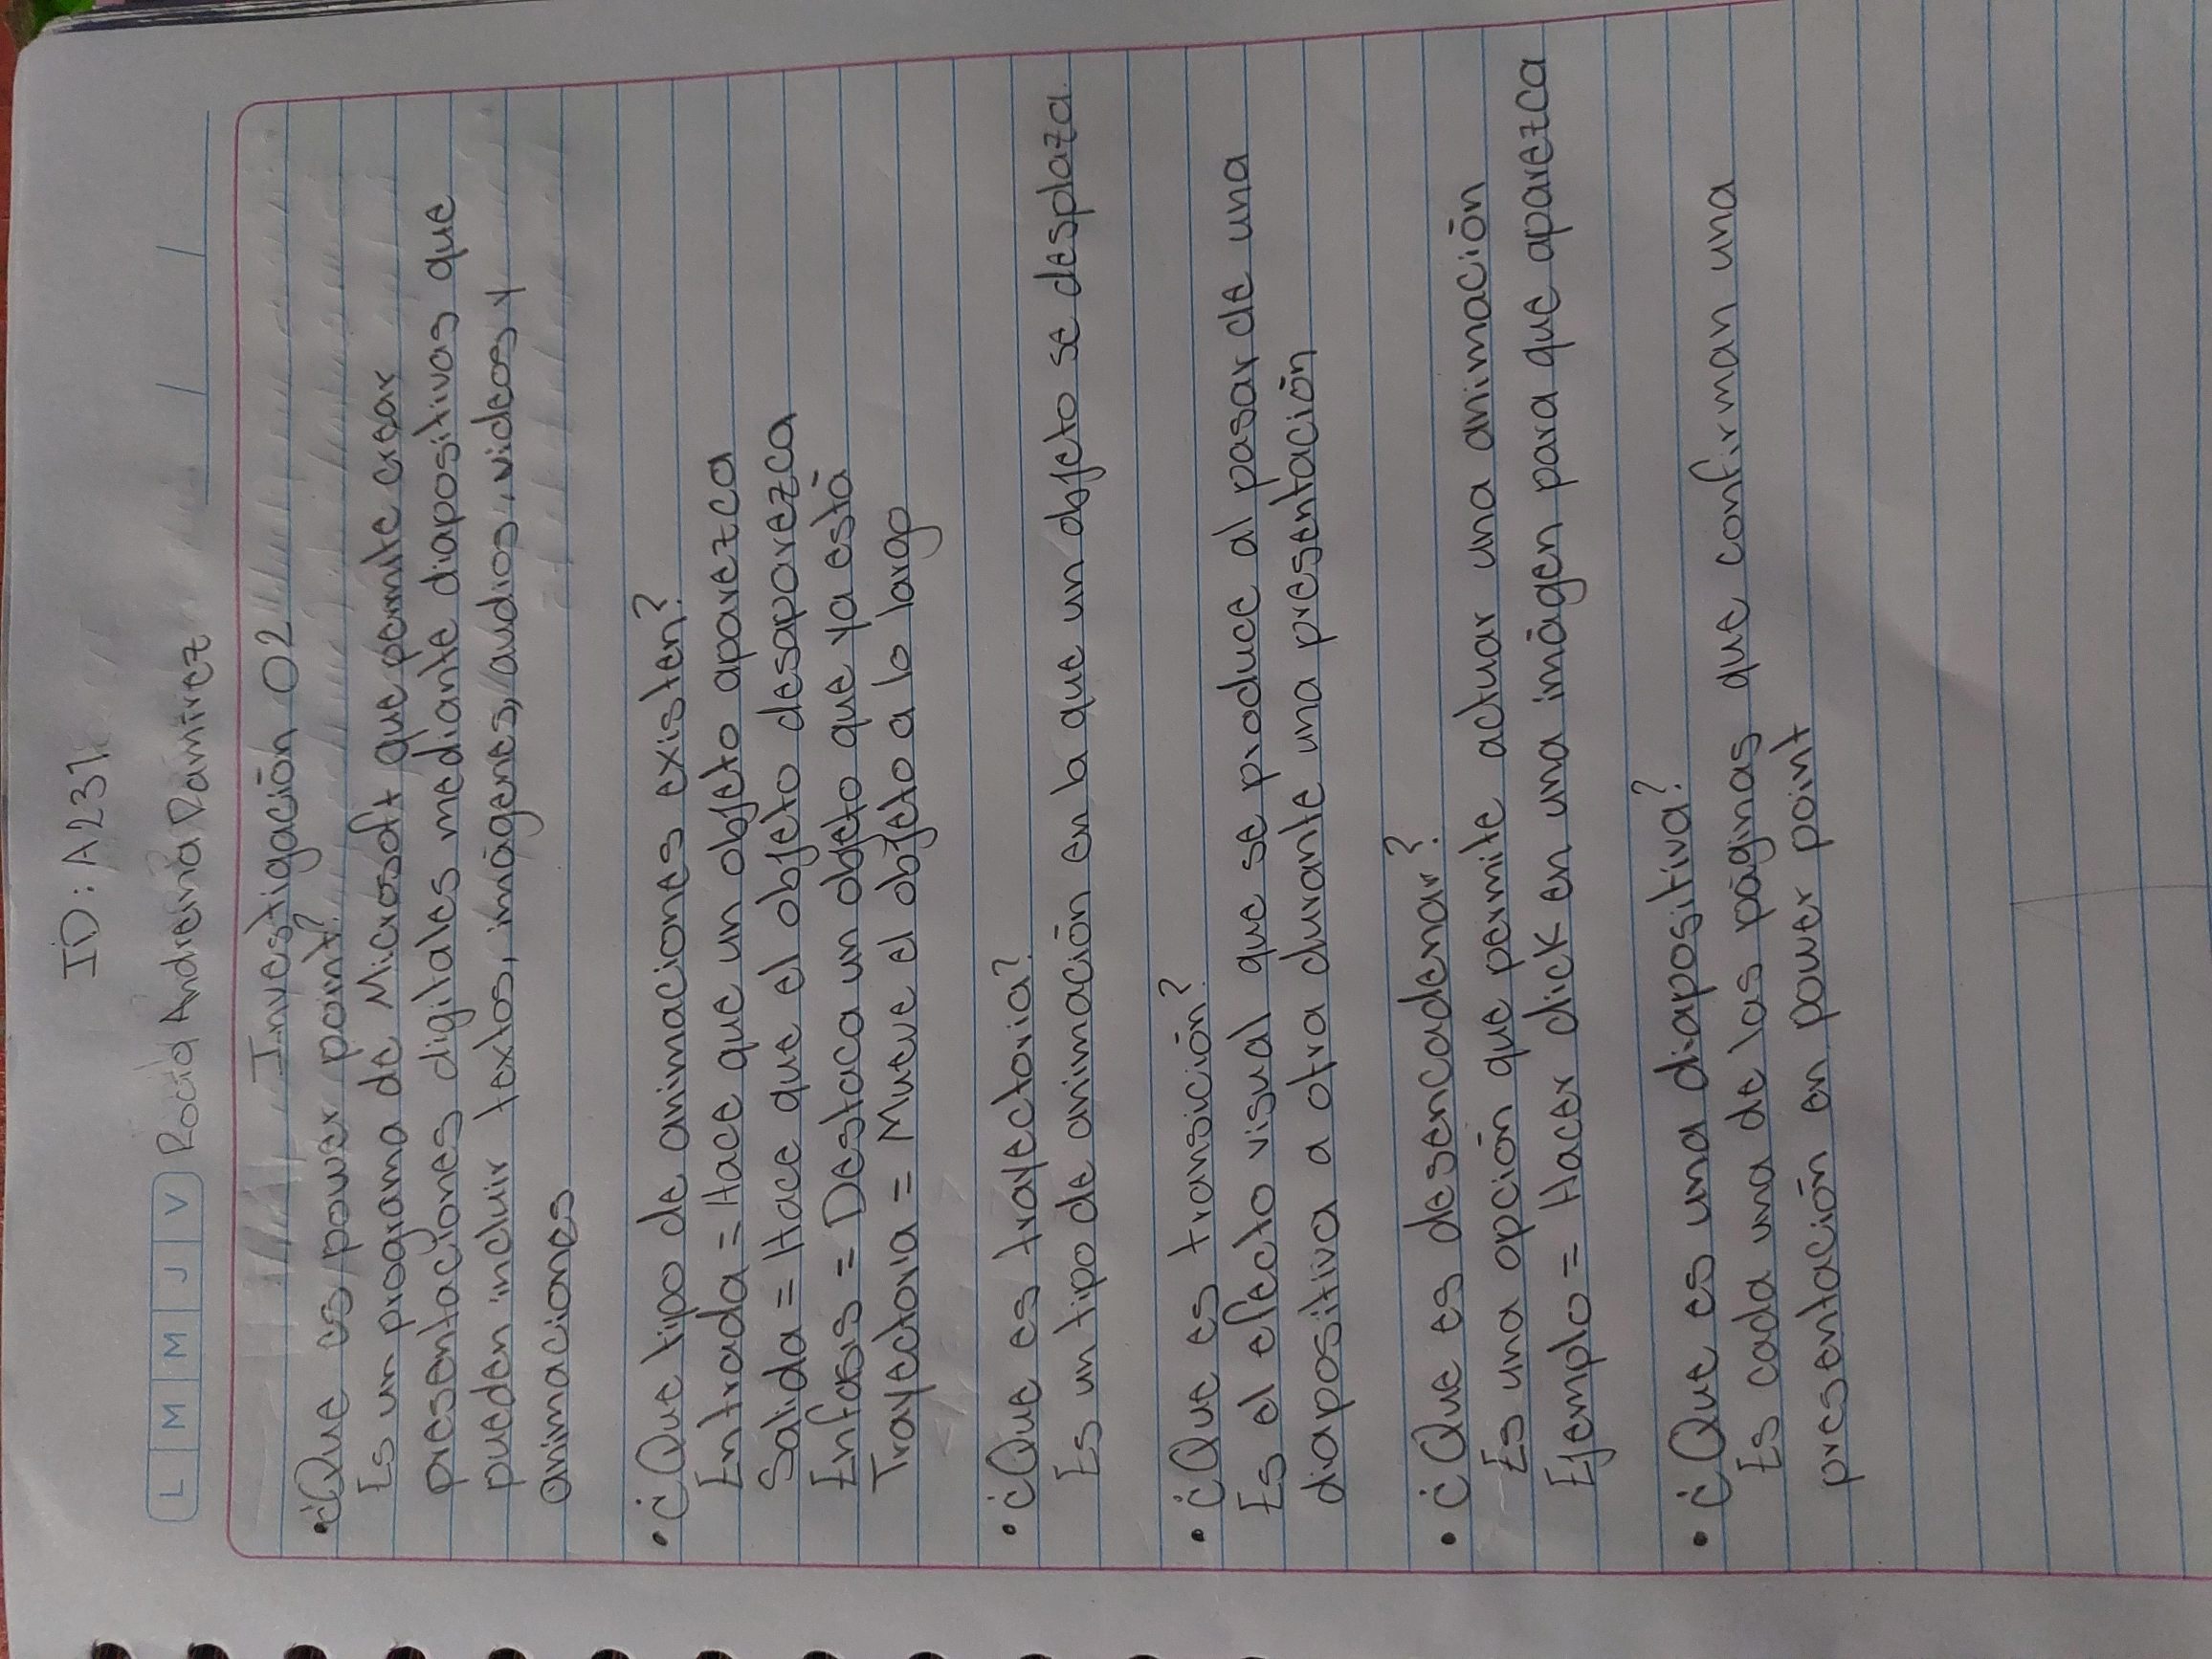 ID: A231
L M M J V Rocio Andreina Ramirez
Investigación 02
• ¿Que es power point?
Es un programa de Microsoft que permite crear
presentaciones digitales mediante diapositivas que
pueden incluir textos, imágenes, audios, videos y
animaciones
• ¿Que tipo de animaciones existen?
Entrada = Hace que un objeto aparezca
Salida = Hace que el objeto desaparezca
Enfasis = Destaca un objeto que ya está
Trayectoria = Mueve el objeto a lo largo
• ¿Que es trayectoria?
Es un tipo de animación en la que un objeto se desplaza.
• ¿Que es transición?
Es el efecto visual que se produce al pasar de una
diapositiva a otra durante una presentación
• ¿Que es desencadenar?
Es una opción que permite actuar una animación
Ejemplo = Hacer click en una imágen para que aparezca
• ¿Que es una diapositiva?
Es cada una de las páginas que confirman una
presentación en power point